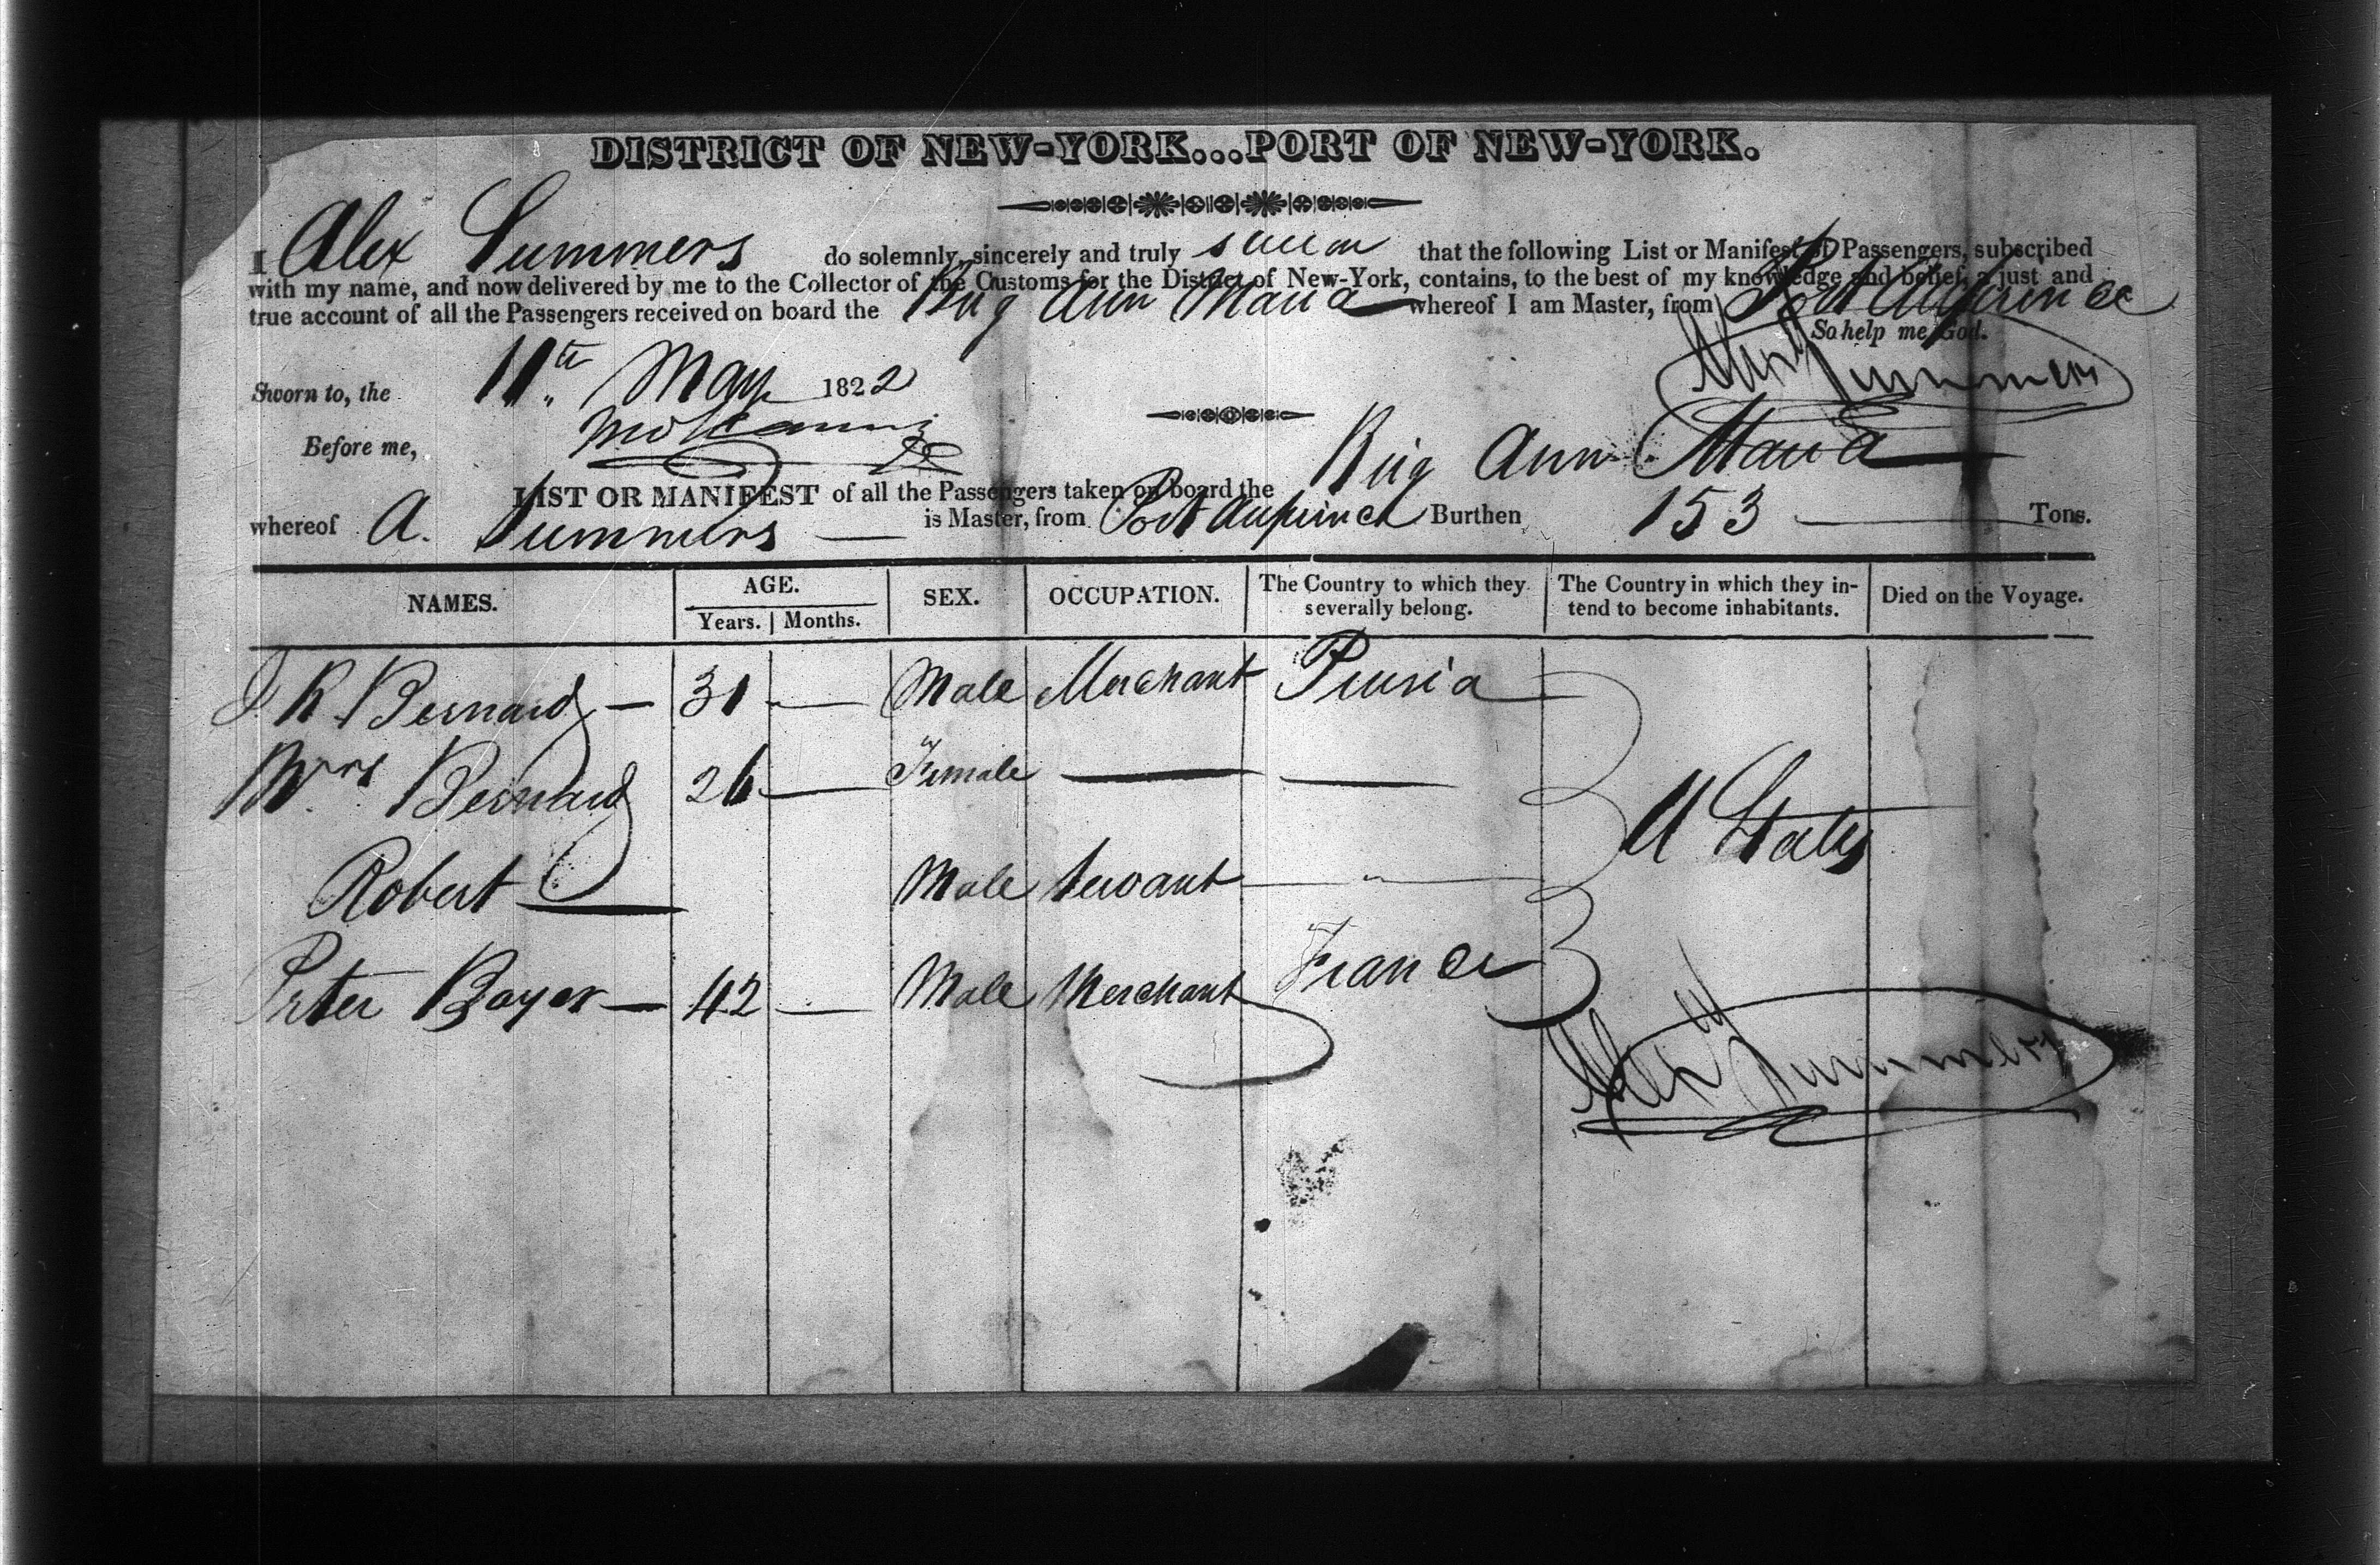 DISTRICT OF NEW-YORK...PORT OF NEW-YORK.
I Alex Summers do solemnly, sincerely and truly swear that the following List or Manifest of Passengers, subscribed
with my name, and now delivered by me to the Collector of the Customs for the District of New-York, contains, to the best of my knowledge and belief, a just and
true account of all the Passengers received on board the Brig Ann Maria whereof I am Master, from Port Auprince
So help me God.
Alex Summers
Sworn to, the 11th May 1822
Before me,
LIST OR MANIFEST of all the Passengers taken on board the Brig Ann Maria
whereof A. Summers is Master, from Port Auprince Burthen 153 Tons.
NAMES. AGE. SEX. OCCUPATION. The Country to which they severally belong. The Country in which they intend to become inhabitants. Died on the Voyage.
Years. Months.
J. R Bernard 31 Male Merchant Prusia
Mrs Bernard 26 Female
U States
Robert Male Servant
Peter Bayer 42 Male Merchant France
Alex Summers